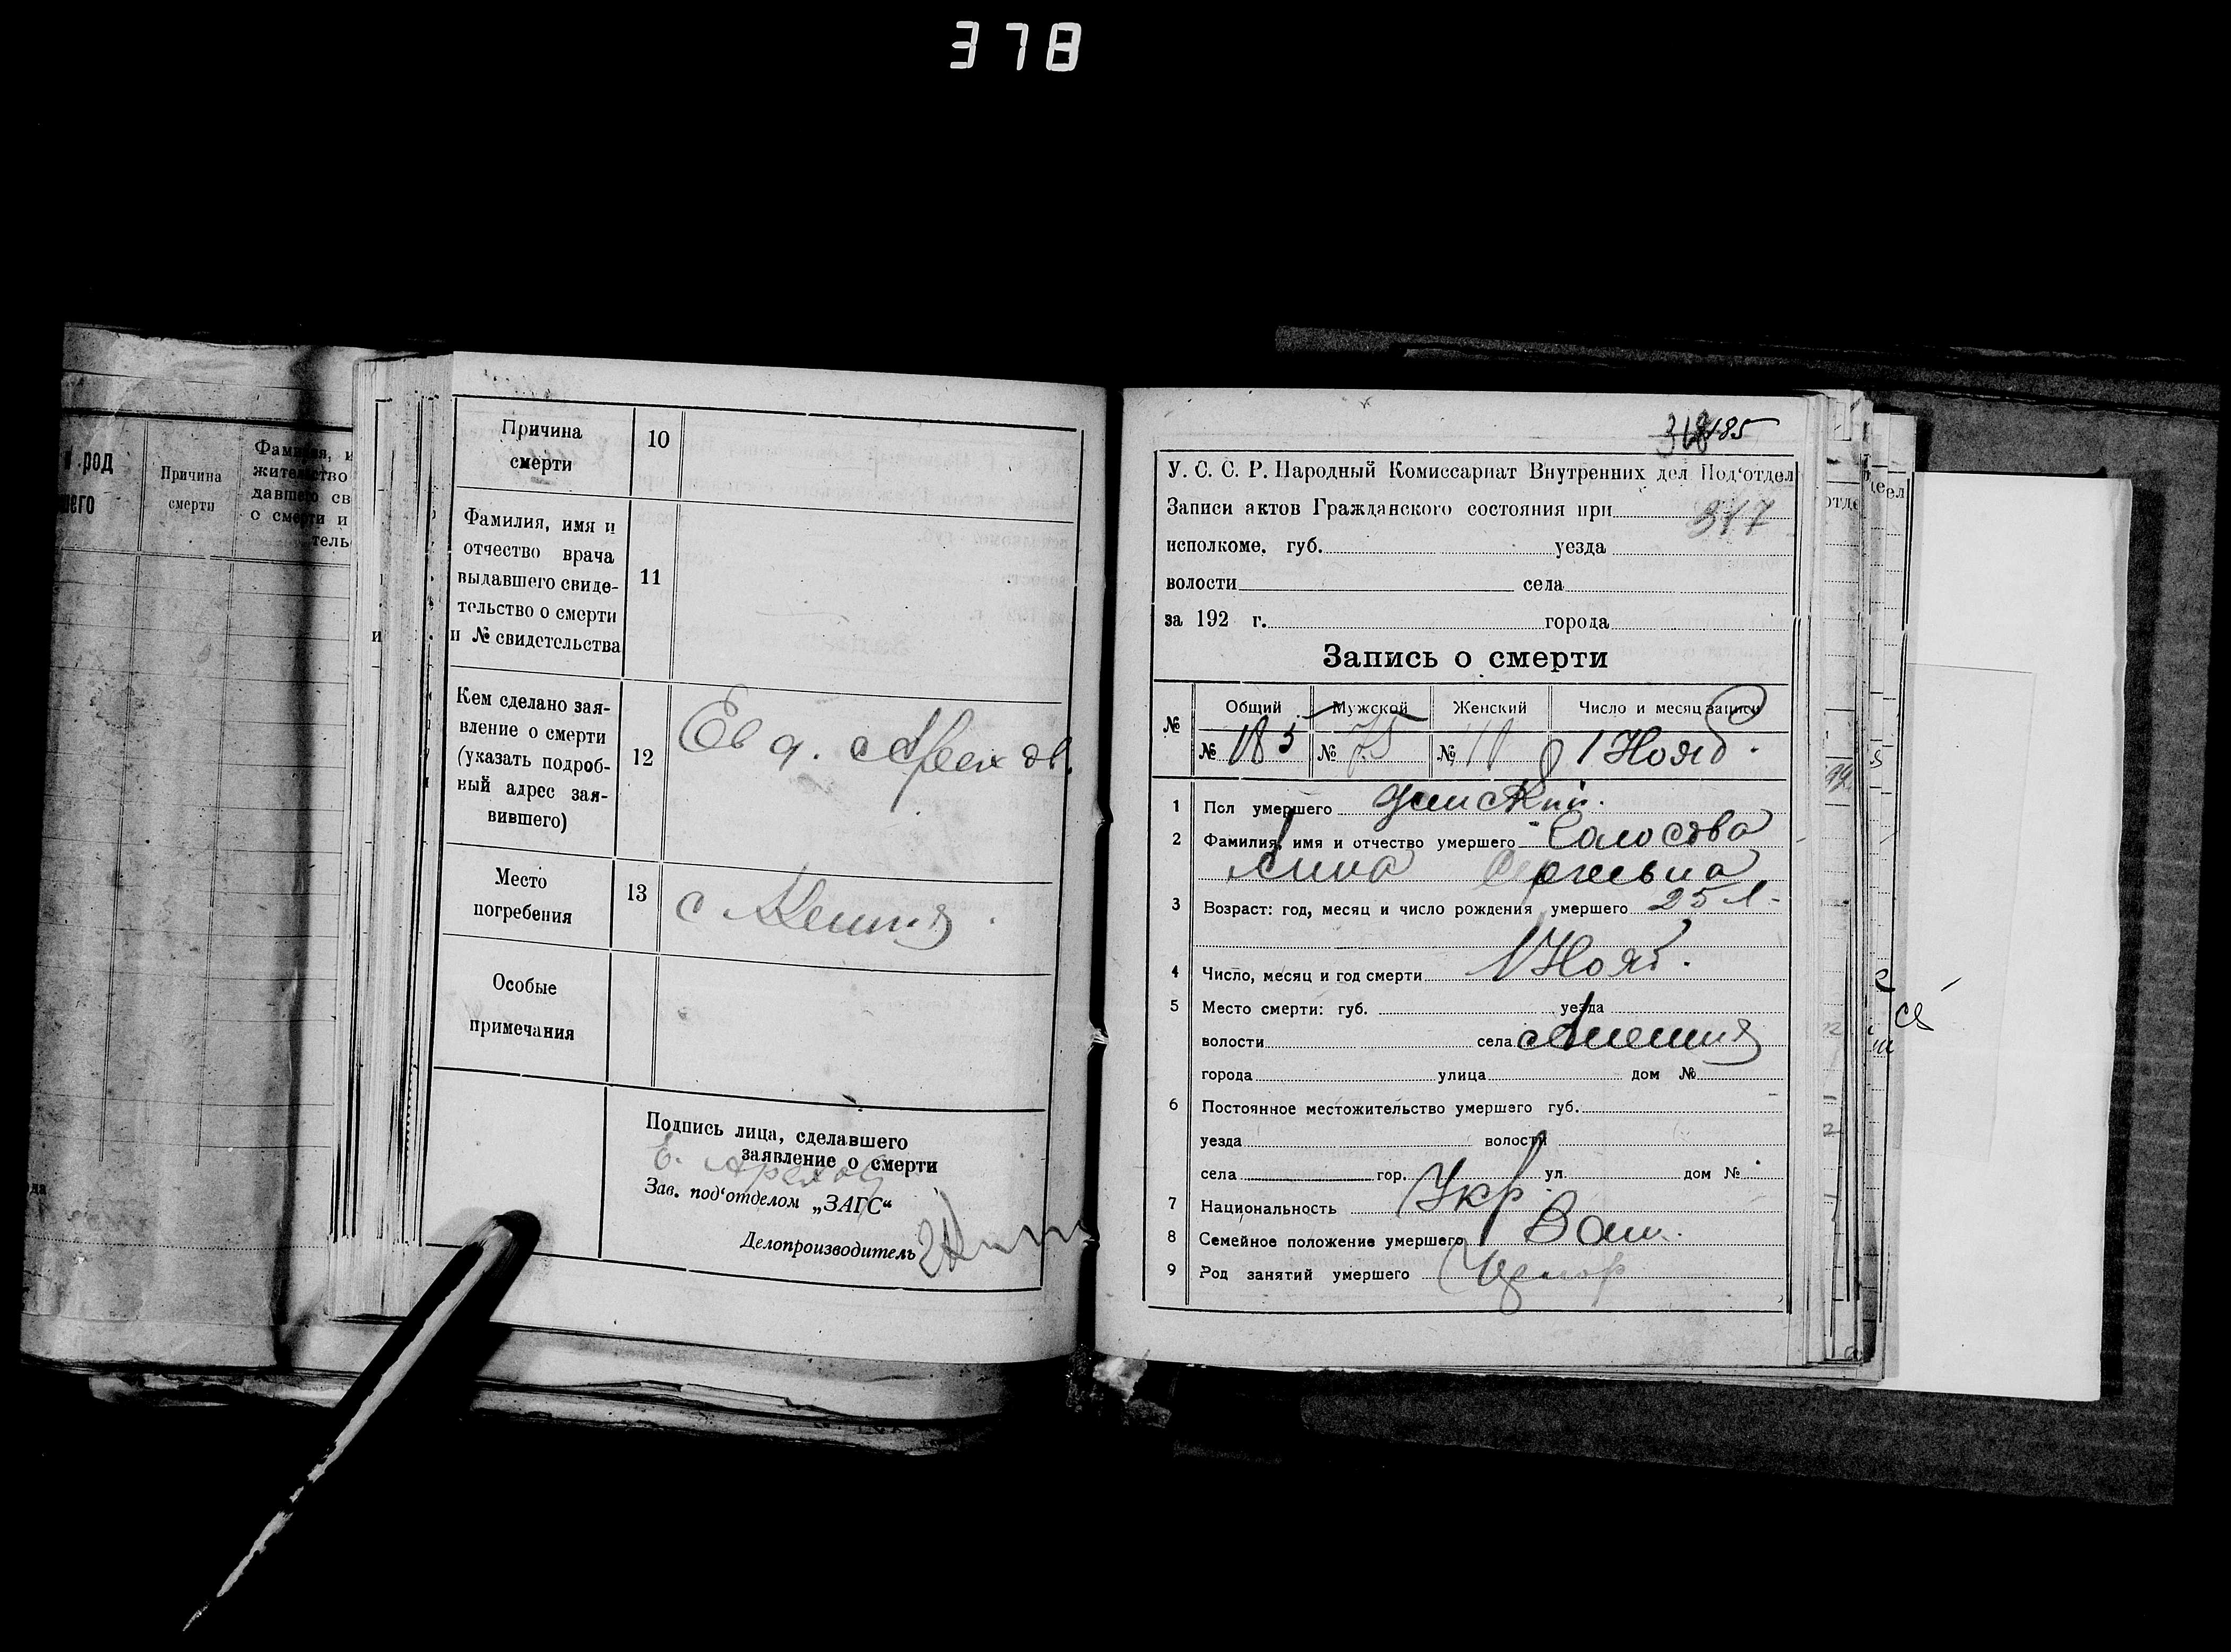 378
и род
шего
Причина
смерти
Фамилия, и
жительство
давшего св
о смерти и
тель
и
Причина
смерти
10
Фамилия, имя и
отчество врача
выдавшего свиде-
тельство о смерти
и № свидетельства
11
Кем сделано зая-
вление о смерти
(указать подроб-
ный адрес зая-
вившего)
12
Место
погребения
13
с
Особые
примечания
Подпись лица, сделавшего
заявление о смерти
Е.
Зав. под‘отделом „ЗАГС“
Делопроизводитель
185
У. С. С. Р. Народный Комиссариат Внутренних дел Под‘отдел
Записи актов Гражданского состояния при 317
исполкоме. губ. уезда
волости села
за 192 г. города
Запись о смерти
№ Общий Мужской Женский Число и месяц записи
№ 185 № 75 № 110 1 Нояб.
1 Пол умершего Женский.
2 Фамилия, имя и отчество умершего
Сергеевна
3 Возраст: год, месяц и число рождения умершего 25 л.
4 Число, месяц и год смерти 1 Нояб.
5 Место смерти: губ. уезда
волости села
города улица дом №
6 Постоянное местожительство умершего губ.
уезда волости
села гор. ул. дом №
7 Национальность Укр.
8 Семейное положение умершего Зам.
9 Род занятий умершего